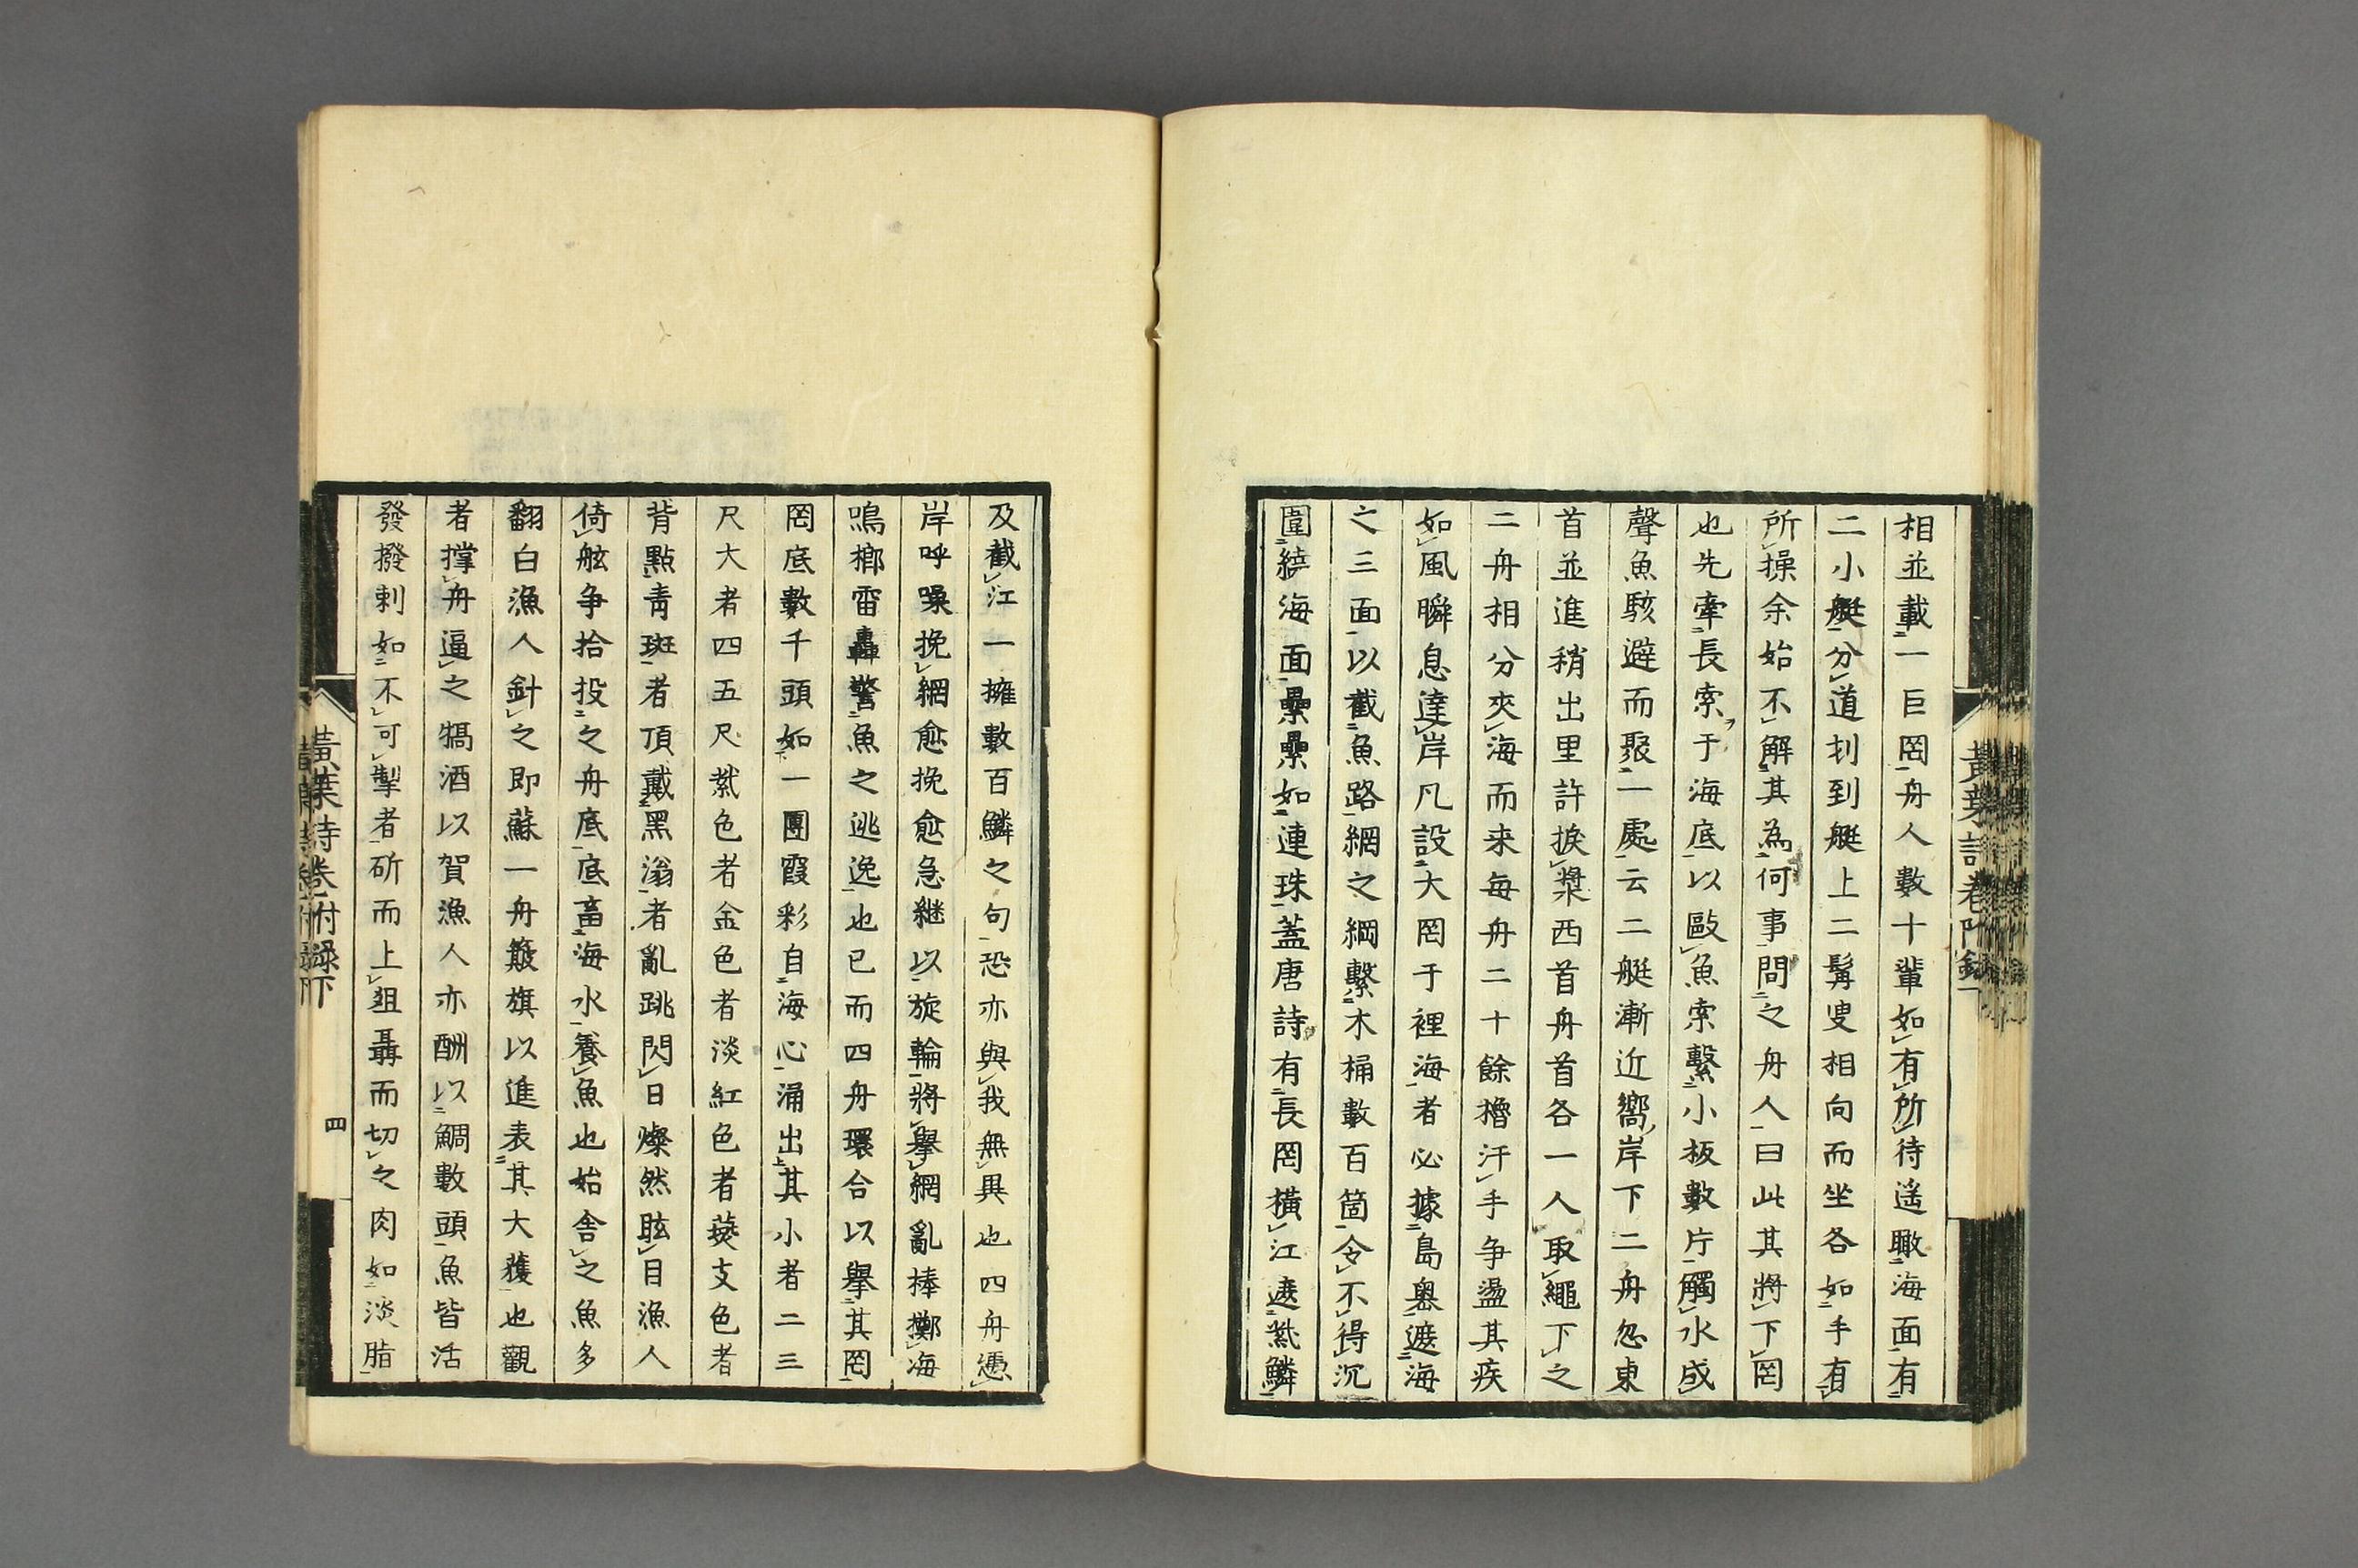 相並載一巨罔舟人數十輩如有所待遥瞰海面有
二小艇分道刌到艇上二髯叟相向而坐各如手有
所操余始不解其為何事問之舟人曰此其將下罔
也先牽長索于海底以敺魚索繫小板數片觸水成
聲魚駭避而聚一處云二艇漸近嚮岸下二舟忽東
首並進稍出里許捩槳西首舟首各一人取繩下之
二舟相分夾海而来每舟二十餘櫓汗手争盪其疾
如風瞬息達岸凡設大罔于裡海者必據島奥遮海
之三面以截魚路網之綱繫木桶數百箇令不得沉
圍繞海面纍纍如連珠蓋唐詩有長罔横江遮紫鱗
及截江一擁數百鱗之句恐亦與我無異也四舟憑
岸呼噪挽網愈挽愈急継以旋輪將擧網亂棒擲海
鳴榔雷轟警魚之逃逸也已而四舟環合以擧其罔
罔底數千頭如一團霞彩自海心涌出其小者二三
尺大者四五尺紫色者金色者淡紅色者燕支色者
背點青斑者頂戴黑滃者亂跳閃日燦然眩目漁人
倚舷争拾投之舟底底畜海水養魚也始舎之魚多
翻白漁人針之即蘇一舟簸旗以進表其大獲也觀
者撑舟逼之犒酒以賀漁人亦酬以鯛數頭魚皆活
發撥剌如不可掣者斫而上爼聶而切之肉如淡脂
黃葉詩卷附録下
四